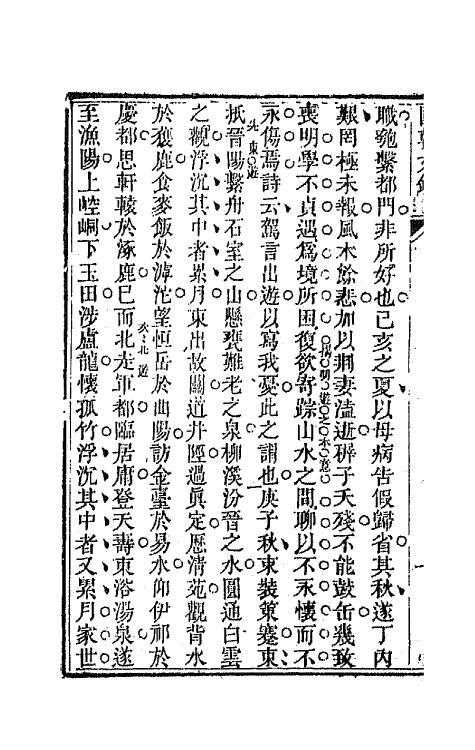 職匏繫都門非所好也己亥之夏以母病告假歸省其秋遂丁內
艱罔極未報風木餘悲加以荊妻溘逝稺子夭殘不能鼓缶幾致
喪明學不貞遇為境所困復欲寄踪山水之間聊以不永懷而不
永傷焉詩云駕言出遊以寫我憂此之謂也庚子秋束裝策蹇東
抵晉陽繫舟石室之山懸甕難老之泉柳溪汾晉之水圓通白雲
之觀浮沉其中者累月東出故關道井陘過真定歷清苑觀背水
於獲鹿食麥飯於滹沱望恒岳於曲陽訪金臺於易水仰伊祁於
慶都思軒轅於涿鹿已而北走軍都臨居庸登天壽東浴湯泉遂
至漁陽上崆峒下玉田涉盧龍懷孤竹浮沉其中者又累月家世